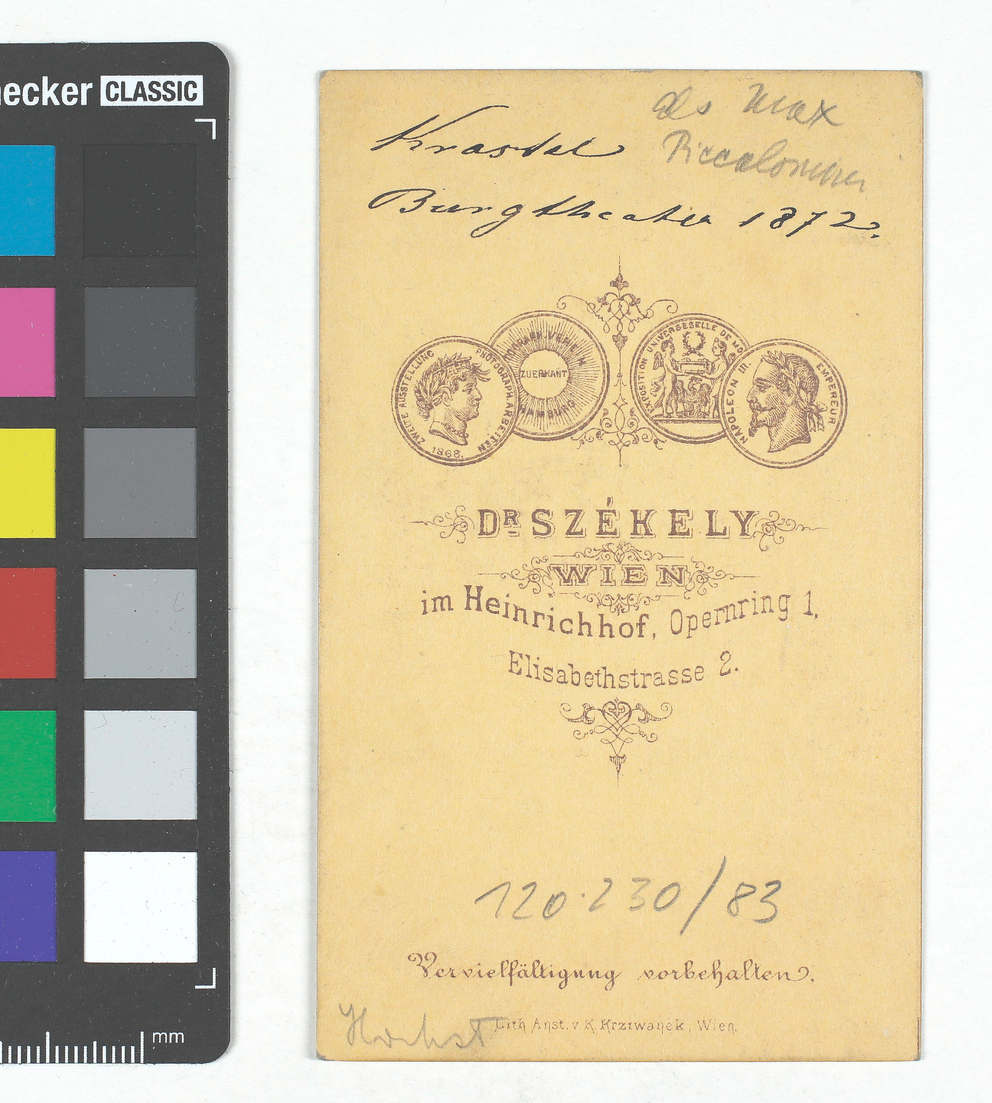 ecker CLASSIC
als Max
Krastel
Piccolomini
Burgtheater 1872.
ZWEITE AUSSTELLUNG PHOTOGRAPH. ARBEITEN
1868.
ZUERKANT
HAMBURG
EXPOSITION UNIVERSESELLE DE
NAPOLEON III. EMPEREUR
DR SZÉKELY
WIEN
im Heinrichhof, Opernring 1,
Elisabethstrasse 2.
120.230/83
Vervielfältigung vorbehalten.
Lith. Anst. v. K. Krziwanek, Wien.
mm